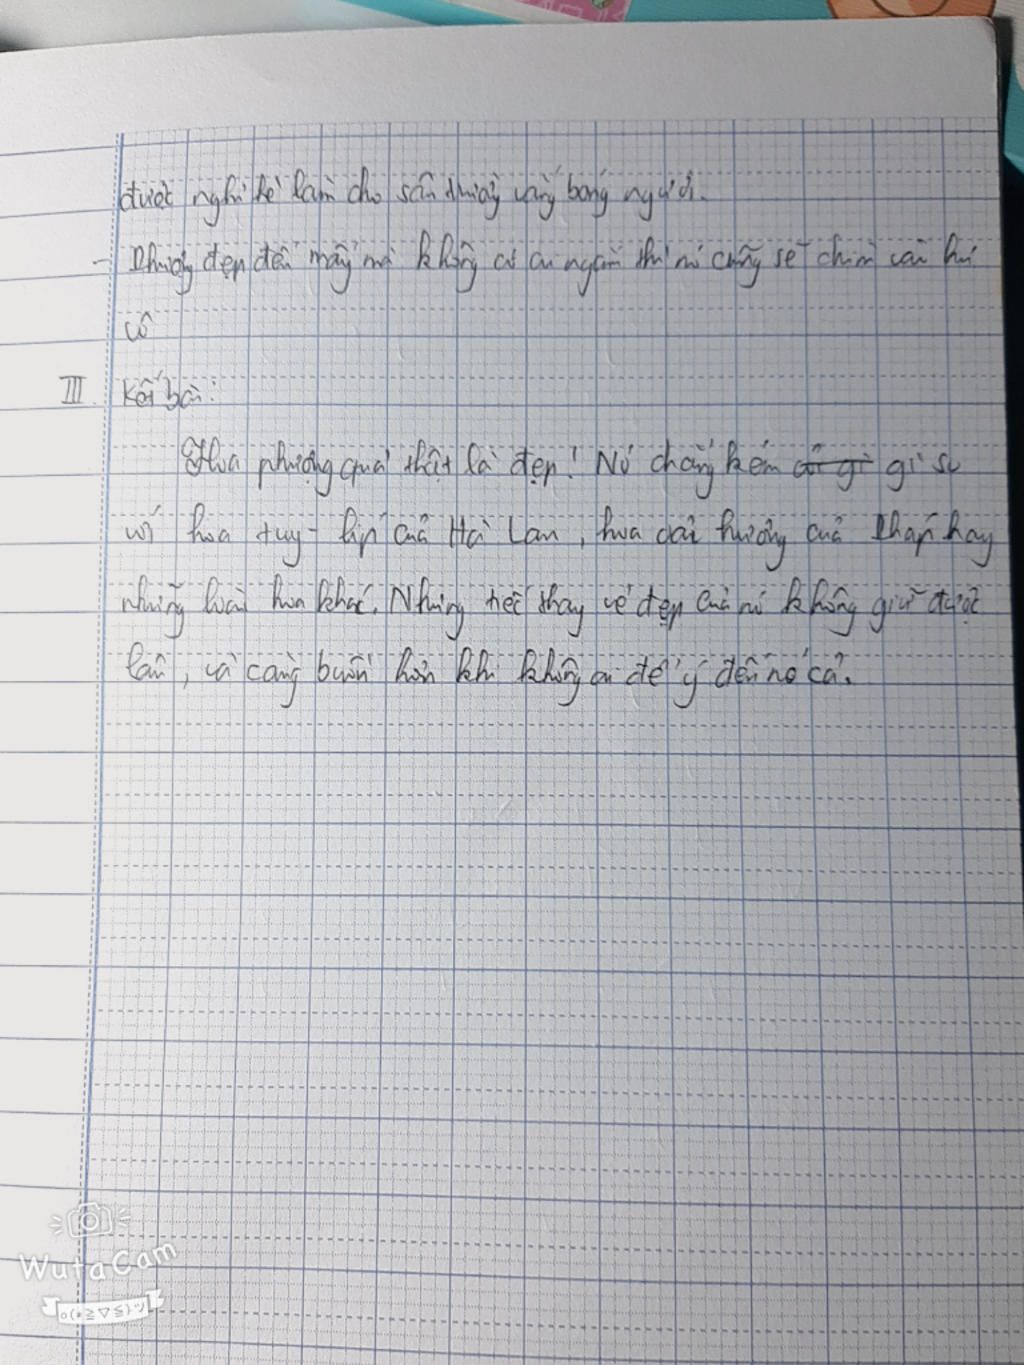 được nghỉ hè làm cho sân trường vắng bóng người.
- Phượng đẹp đến mấy mà không có ai ngắm thì nó cũng sẽ chìm vào hư
vô
III Kết bài:
Hoa phượng quả thật là đẹp! Nó chẳng kém cái gì gì so
với hoa tuy-lip của Hà Lan, hoa oải hương của Pháp hay
những loài hoa khác. Nhưng tiếc thay vẻ đẹp của nó không giữ được
lâu, và càng buồn hơn khi không ai để ý đến nó cả.
WutaCam